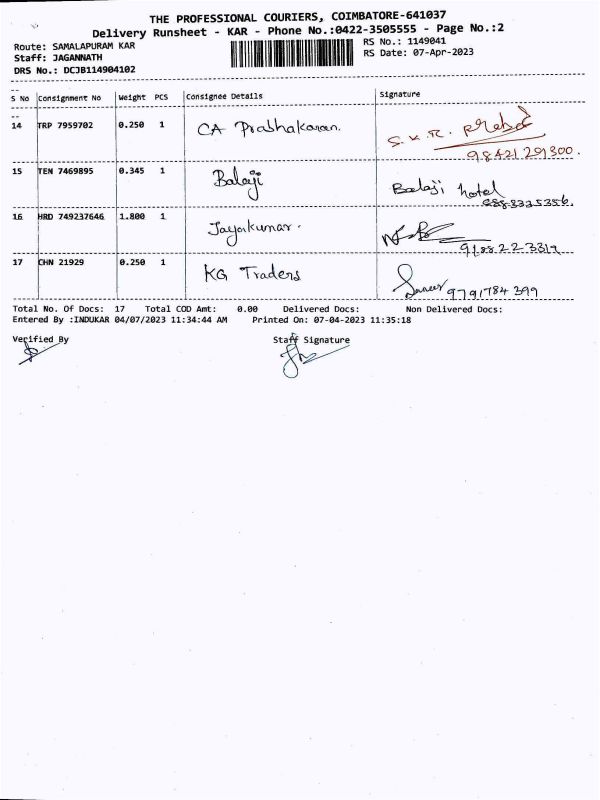 THE PROFESSIONAL COURIERS, COIMBATORE-641037
Delivery Runsheet - KAR - Phone No.:0422-3505555 - Page No.:2
Route: SAMALAPURAM KAR RS No.: 1149041
Staff: JAGANNATH RS Date: 07-Apr-2023
DRS No.: DCJB114904102
S No Consignment No Weight PCS Consignee Details Signature
14 TRP 7959702 0.250 1 CA Prabhakaran. S.V.R.
9842129300.
15 TEN 7469895 0.345 1 Balaji Balaji hotel
16 HRD 749237646 1.800 1 Jayakumar.
17 CHN 21929 0.250 1 KG Traders
9791784399
Total No. Of Docs: 17 Total COD Amt: 0.00 Delivered Docs: Non Delivered Docs:
Entered By :INDUKAR 04/07/2023 11:34:44 AM Printed On: 07-04-2023 11:35:18
Verified By Staff Signature